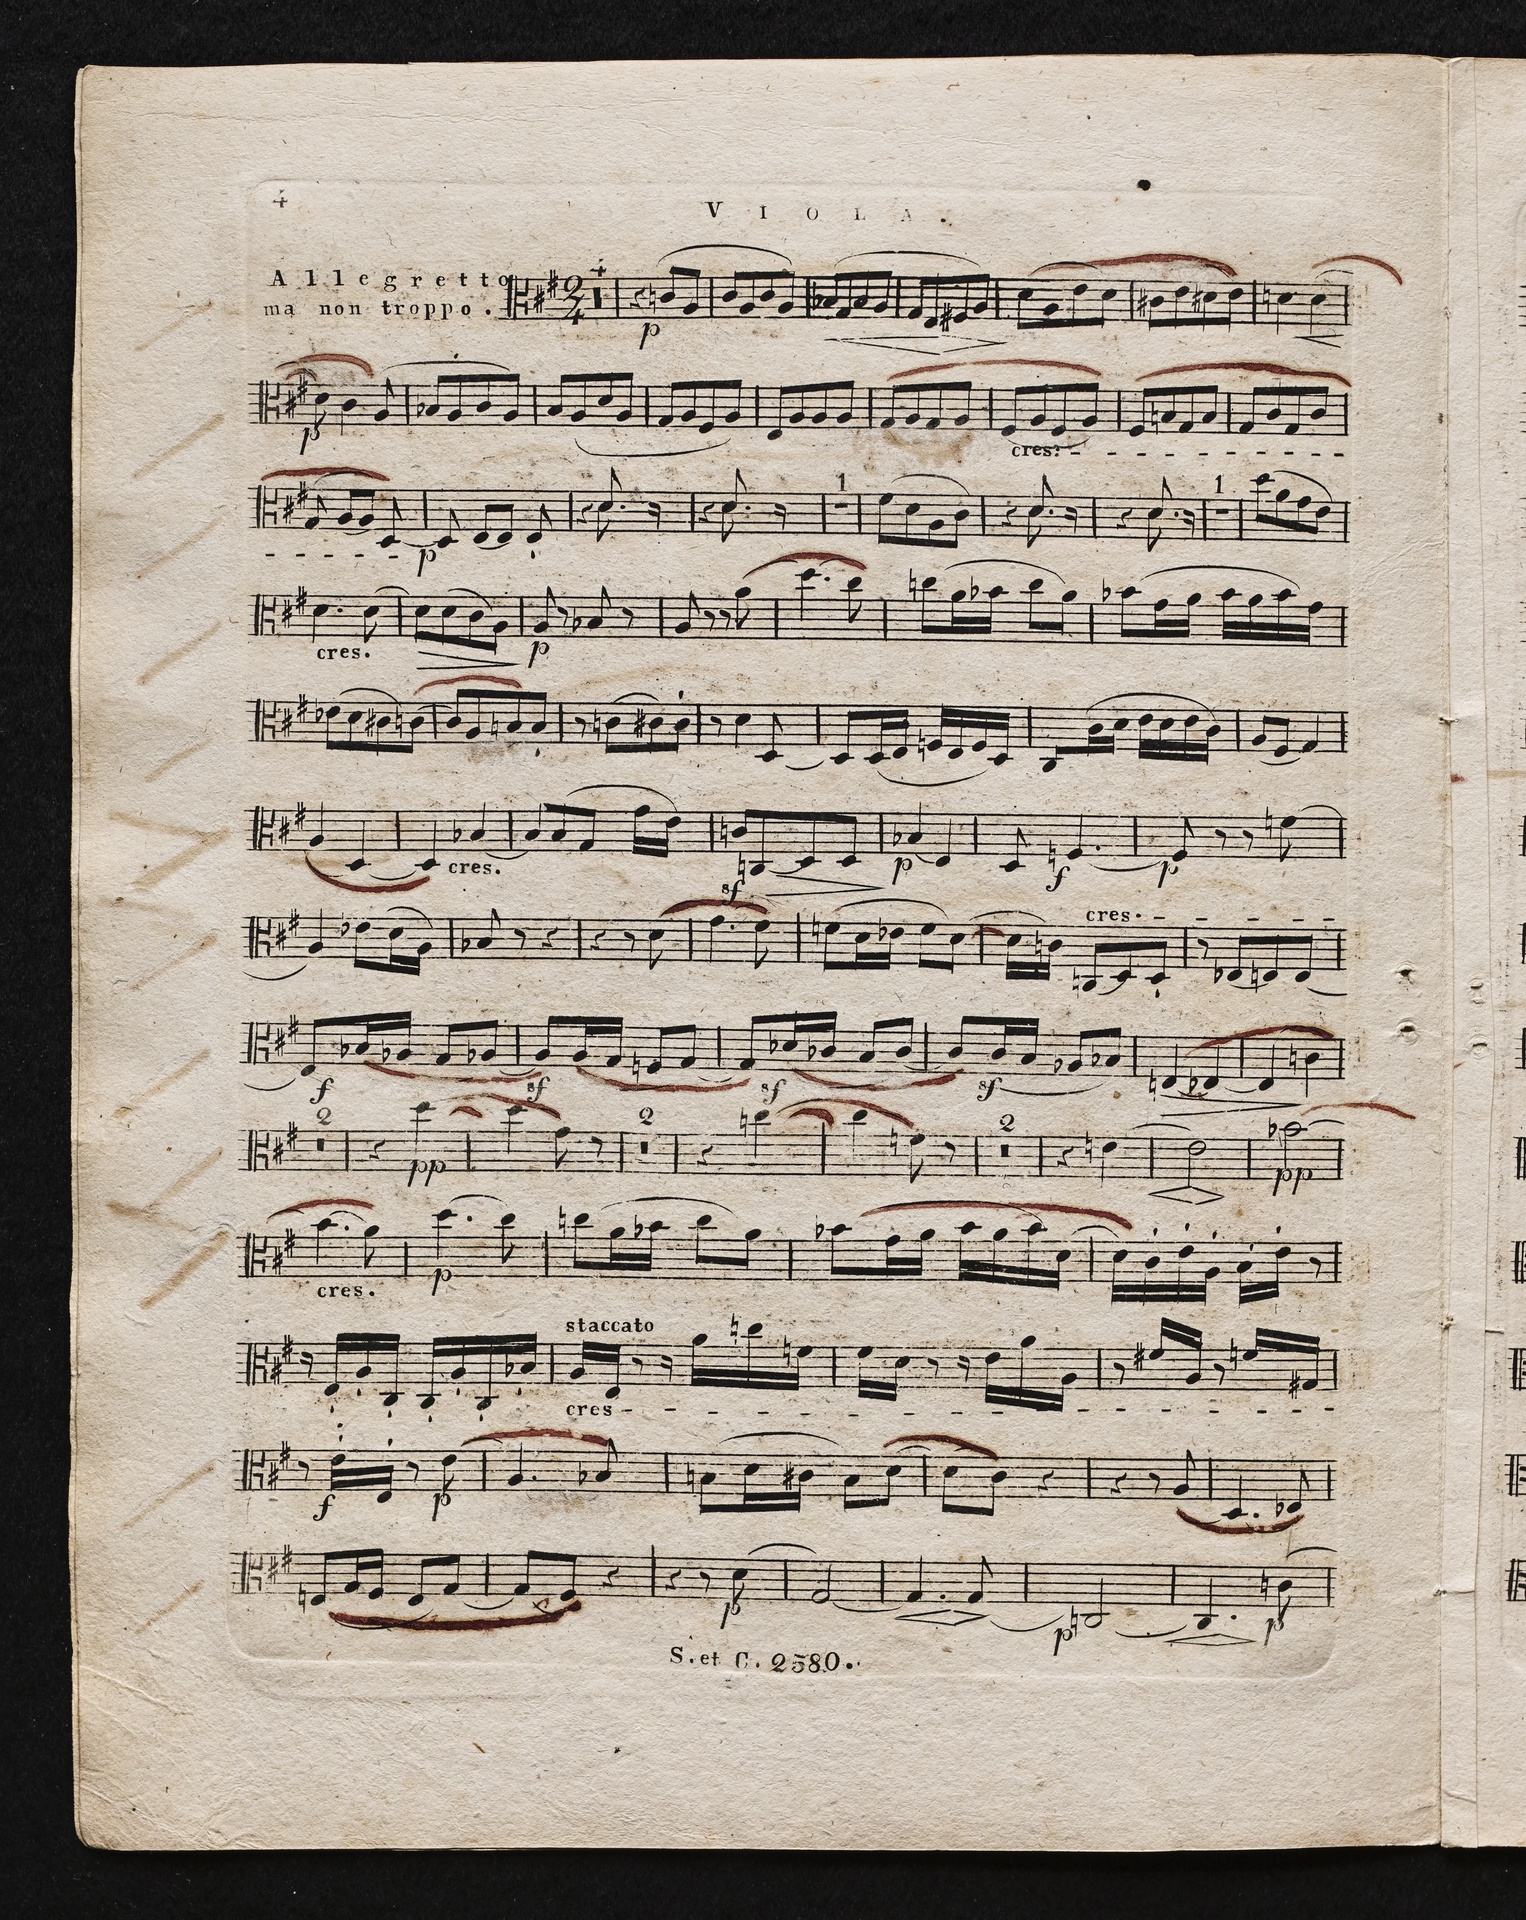 4
VIOLA.
Allegretto
ma non troppo.
4
2
4
p
p
cres:
1
1
p
cres.
p
cres.
sf
p
f
p
cres.
f
sf
sf
sf
2
2
2
pp
pp
cres.
p
staccato
cres
f
p
p
p
p
S. et C. 2580.